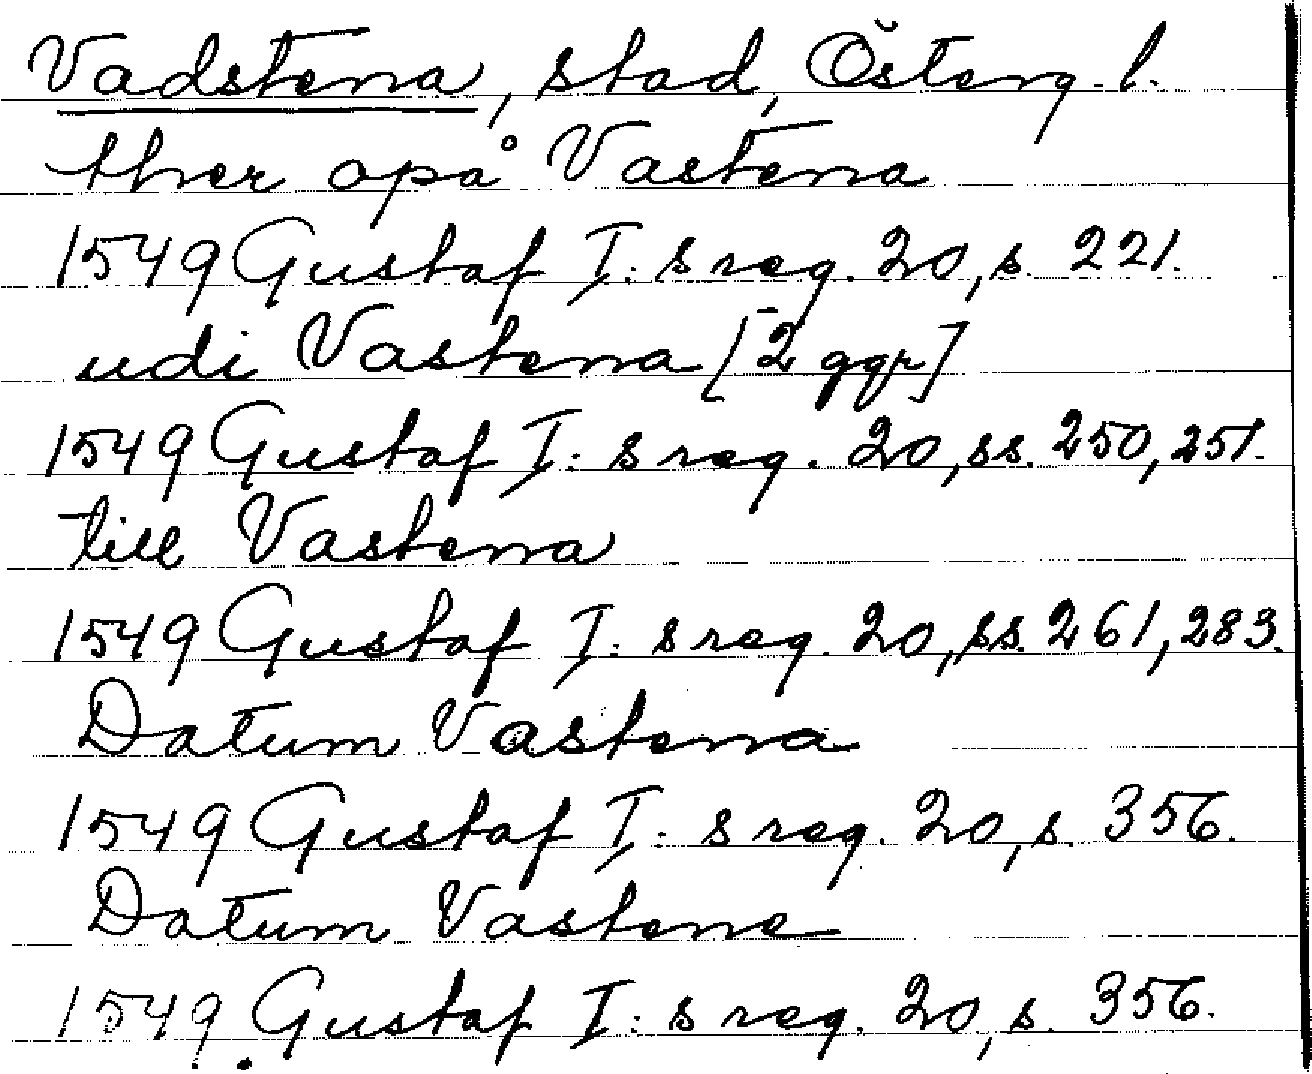 Vadstena, stad, Österg. l.
ther opå Vastena
1549 Gustaf I:s reg. 20, s. 221.
udi Vastena [2 ggr]
1549 Gustaf I:s reg. 20, ss. 250, 251.
till Vastena
1549 Gustaf I:s reg. 20, ss. 261, 283.
Datum Vastena
1549 Gustaf I:s reg. 20, s. 356.
Datum Vastene
1549 Gustaf I:s reg. 20, s. 356.